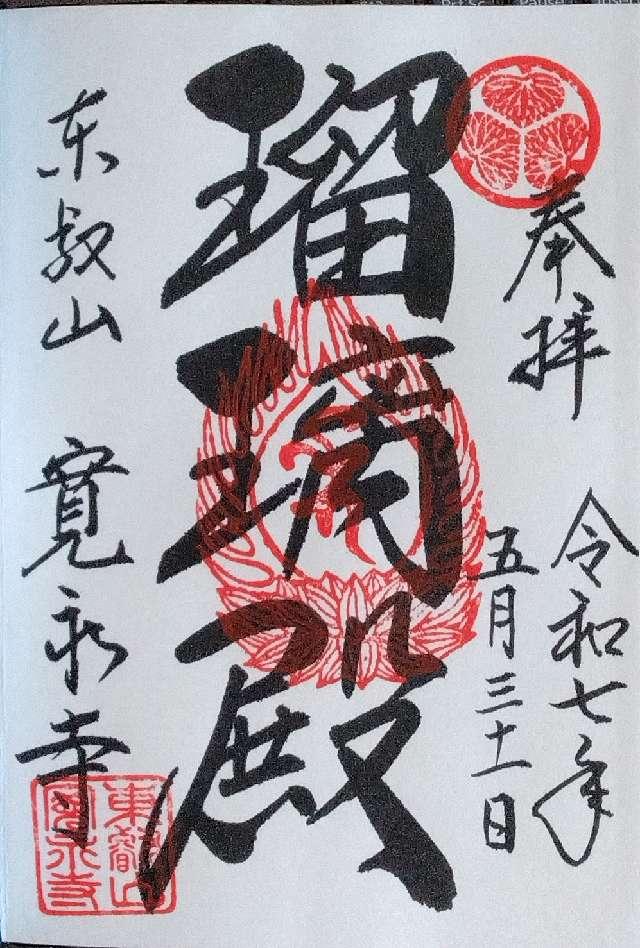 奉拝
令和七年
五月三十一日
瑠璃殿
东叡山 寛永寺
東叡山
寛永寺